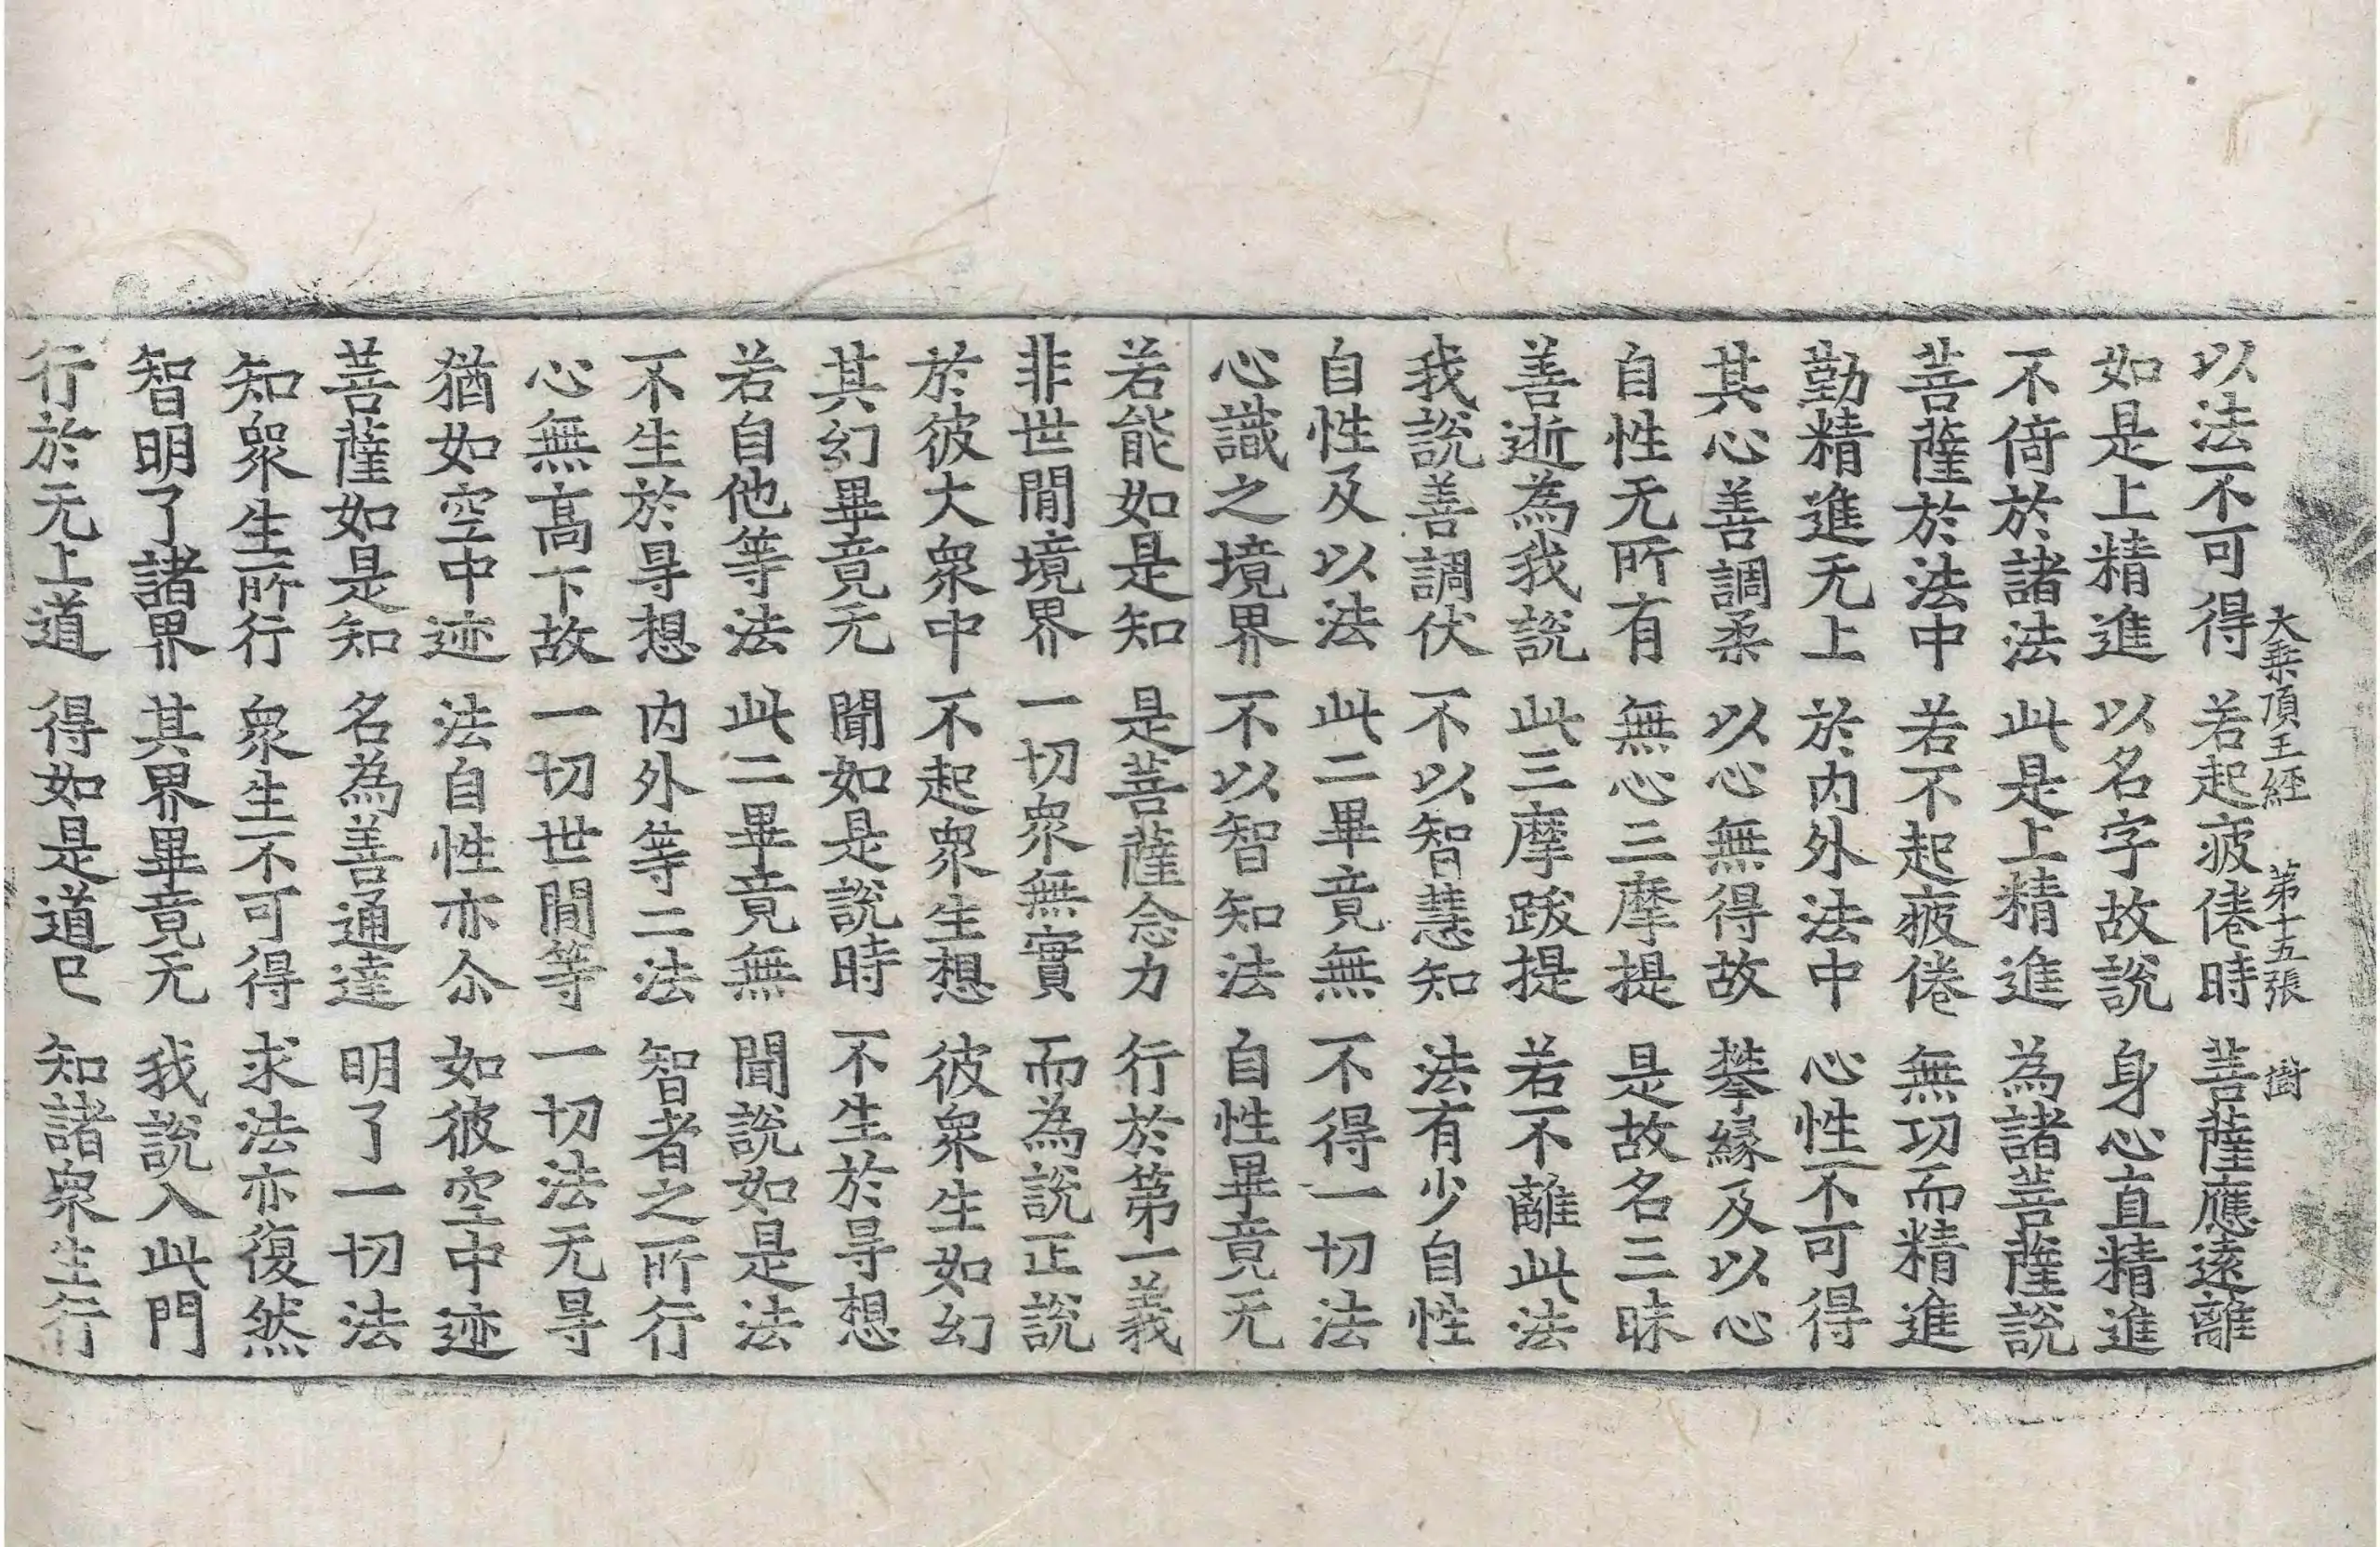 大乗頂王經 第十五張 樹
以法不可得 若起疲倦時 菩薩應遠離
如是上精進 以名字故說 身心直精進
不倚於諸法 此是上精進 為諸菩薩說
菩薩於法中 若不起疲倦 無功而精進
勤精進无上 於内外法中 心性不可得
其心善調柔 以心無得故 攀緣及以心
自性无所有 無心三摩提 是故名三昧
善逝為我說 此三摩跋提 若不離此法
我說善調伏 不以智慧知 法有少自性
自性及以法 此二畢竟無 不得一切法
心識之境界 不以智知法 自性畢竟无
若能如是知 是菩薩念力 行於第一義
非世閒境界 一切衆無實 而為說正說
於彼大衆中 不起衆生想 彼衆生如幻
其幻畢竟无 聞如是說時 不生於㝵想
若自他等法 此二畢竟無 聞說如是法
不生於㝵想 内外等二法 智者之所行
心無高下故 一切世閒等 一切法无㝵
猶如空中迹 法自性亦尒 如彼空中迹
菩薩如是知 名為善通達 明了一切法
知衆生所行 衆生不可得 求法亦復然
智明了諸界 其界畢竟无 我說入此門
行於无上道 得如是道已 知諸衆生行